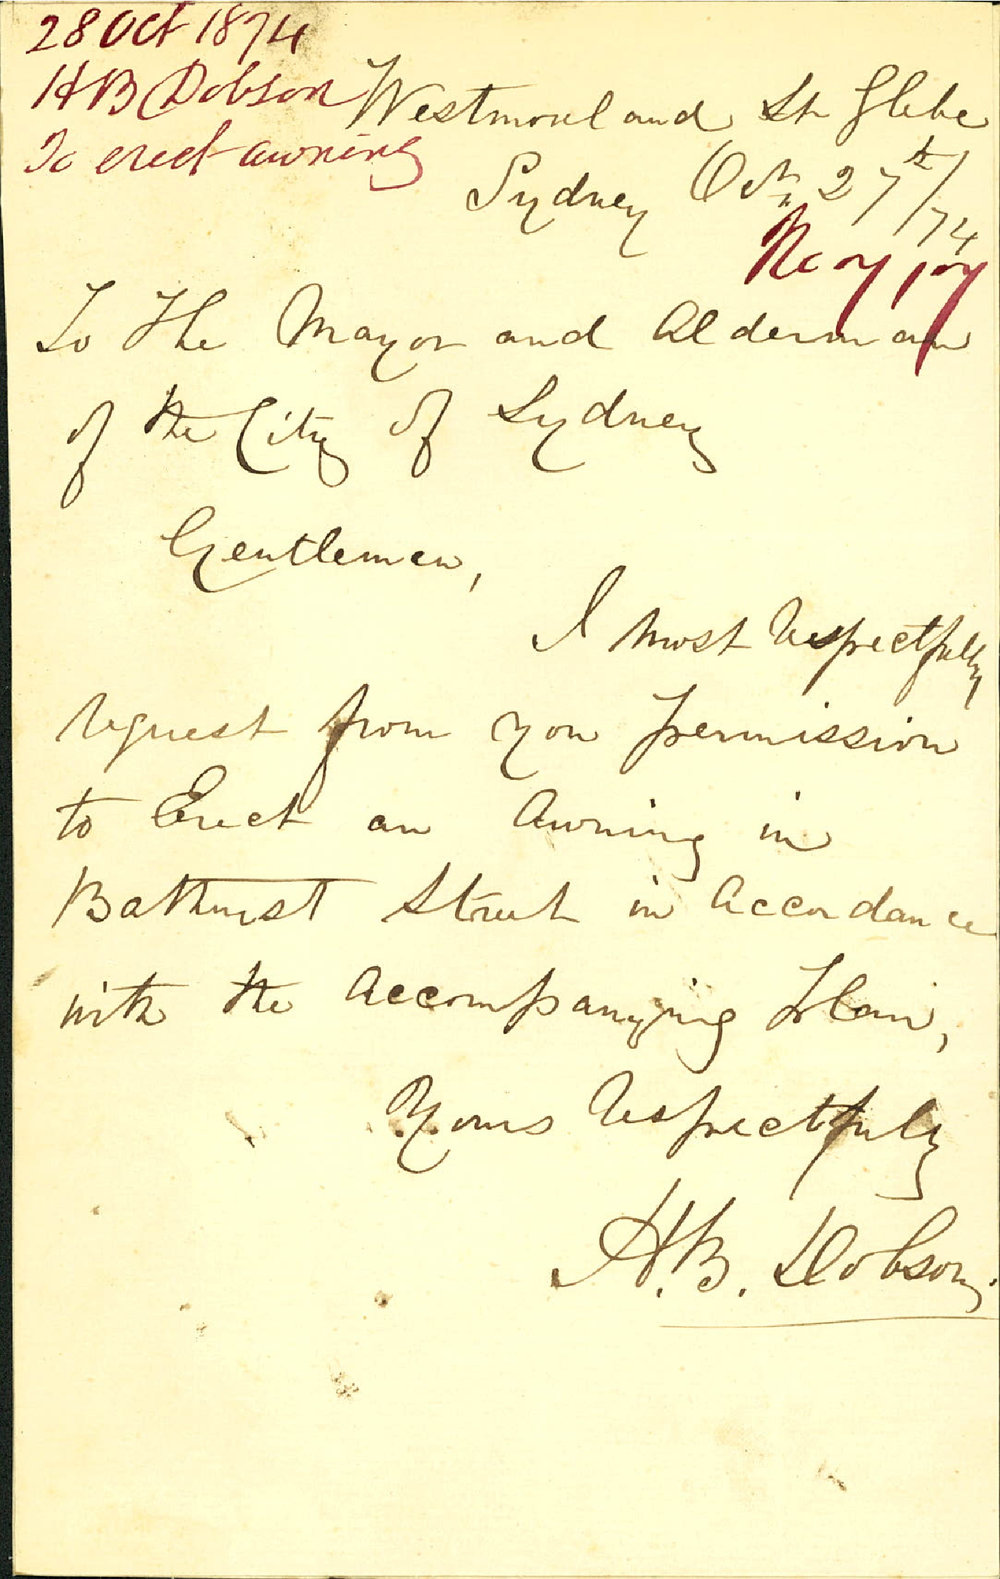 28 Oct 1874
H B Dobson
To erect awning
Westmoreland St Glebe
Sydney Oct 27th/74
To The Mayor and Alderman
of the City of Sydney
Gentlemen,
I most respectfully
request from you permission
to Erect an Awning in
Bathurst Street in Accordance
with the Accompanying Plan,
Yours respectfully
H. B. Dobson.